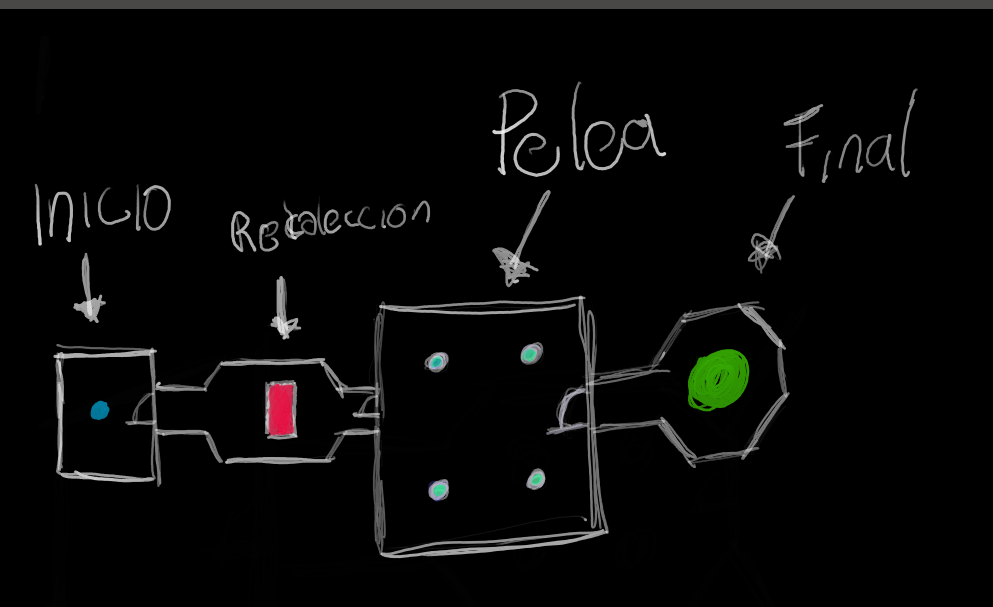 INICIO
Recoleccion
Pelea
Final